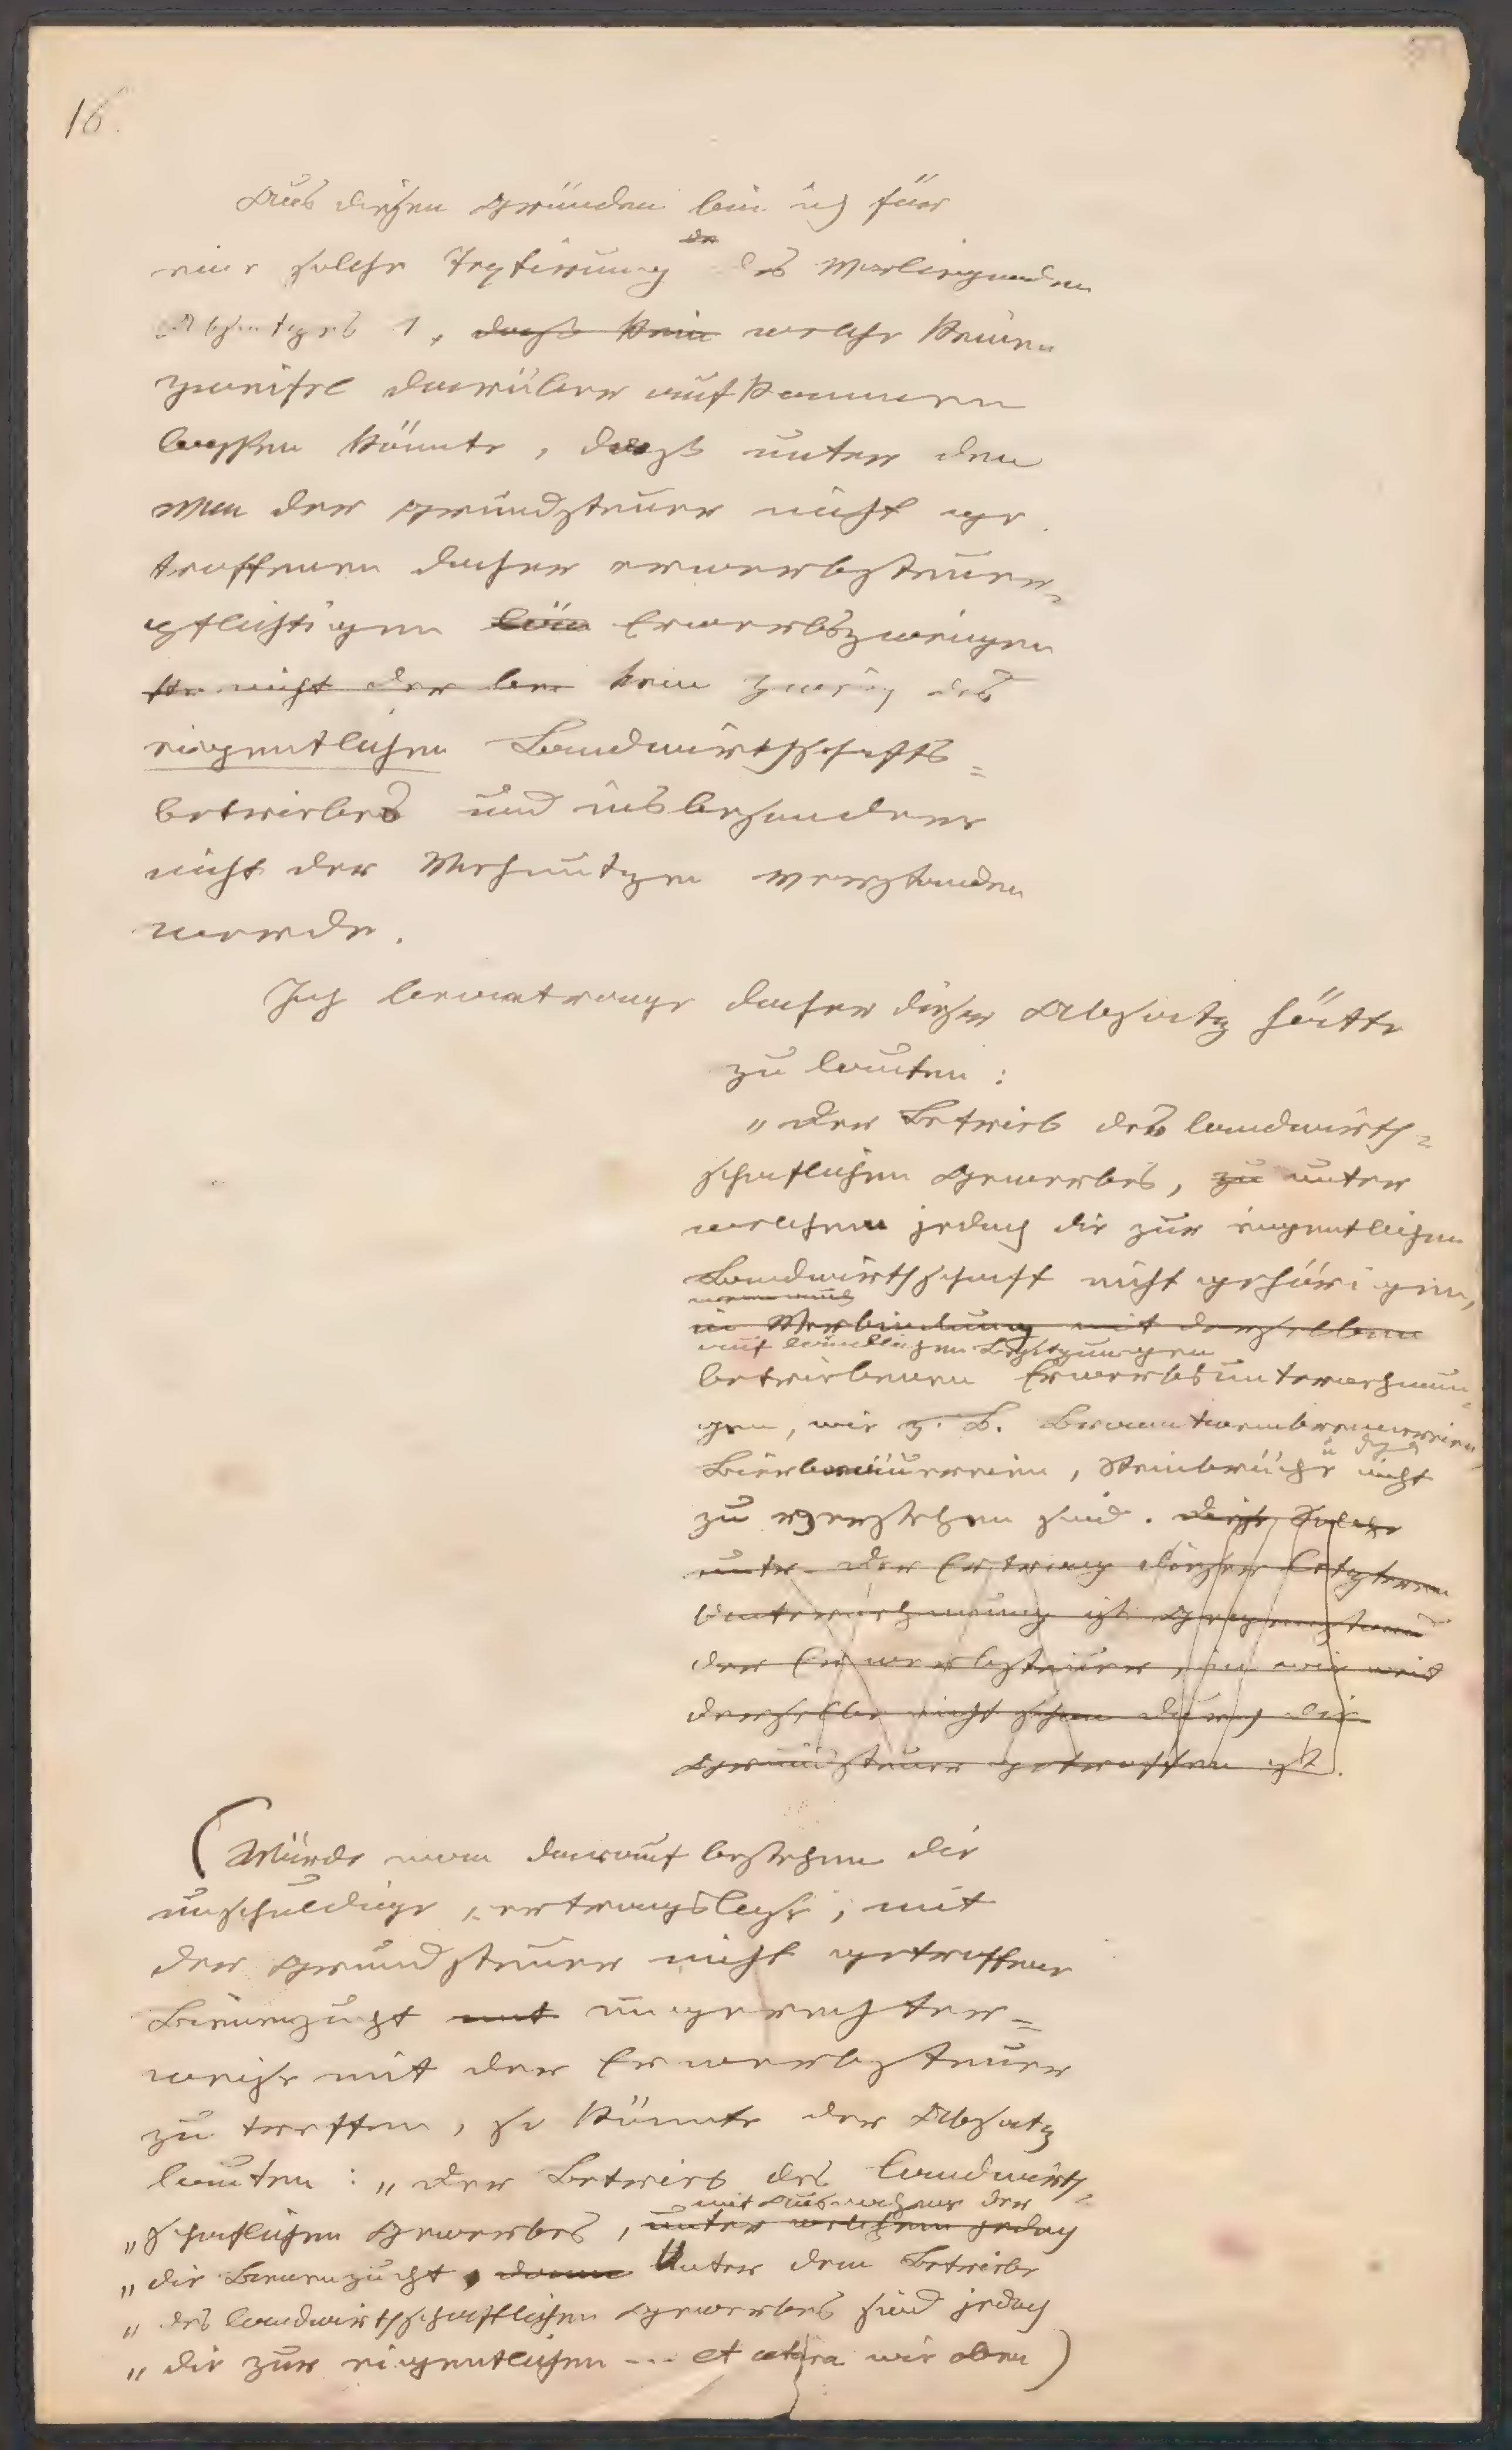 16.
Aus diesen Gründen bin ich für
eine solche Textirung des vorliegenden
Absatzes 1, daß kein welche keinen
Zweifel darüber aufkommen
lassen könnte, daß unter den
von der Grundsteuer nicht ge
troffenen daher erwerbsteuer-
pflichtigen Erwerbszweigen
nicht der kein Zweig des
eigentlichen Landwirthschafts=
betriebes und insbesondere
nicht der verstanden
werde.
Ich beantrage daher dieser Absatz hätte
zu lauten:
"Der Betrieb des landwirth=
schaftlichen Gewerbes, zu unter
welchem jedoch die zur eigentlichen
Landwirthschaft nicht gehörigen,
wenn auch
in Verbindung mit derselben
auf ländlichen Besitzungen
betriebenen Erwerbsunternehmun=
gen, wie z. B. Branntweinbrennereien,
u dgl
Bierbrauereien, Steinbrüche nicht
zu verstehen sind. Diese Solche
unter Der Ertrag dieser letzteren
Unternehmung ist Gegenstand
der Erwerbsteuer, in wie weit
derselbe nicht schon durch die
Grundsteuer getroffen ist.
(Würde man darauf bestehen die
unschuldige, ertragslose, mit
der Grundsteuer nicht getroffene
Bienenzucht mit ungerechter=
weise mit der Erwerbsteuer
zu treffen, so könnte der Absatz
lauten: "Der Betrieb des landwirth=
mit Ausnahme der
"schaftlichen Gewerbes, unter welchem jedoch
"die Bienenzucht, dann Unter dem Betriebe
"des landwirthschaftlichen Gewerbes sind jedoch
"die zur eigentlichen --- et cetera wie oben)